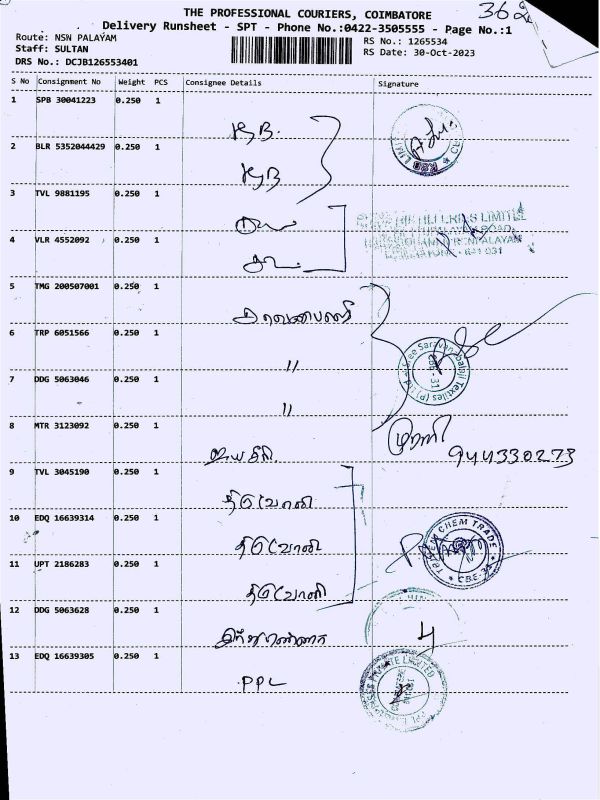 THE PROFESSIONAL COURIERS, COIMBATORE
Delivery Runsheet - SPT - Phone No.:0422-3505555 - Page No.:1
Route: NSN PALAYAM
RS No.: 1265534
Staff: SULTAN
RS Date: 30-Oct-2023
DRS No.: DCJB126553401
S No Consignment No Weight PCS Consignee Details Signature
1 SPB 30041223 0.250 1
KJB.
2 BLR 5352044429 0.250 1
KJB
3 TVL 9881195 0.250 1
4 VLR 4552092 0.250 1
5 TMG 200507001 0.250 1
6 TRP 6051566 0.250 1
"
7 DDG 5063046 0.250 1
"
8 MTR 3123092 0.250 1
முரளி
944330273
9 TVL 3045190 0.250 1
திருவோணி
10 EDQ 16639314 0.250 1
திருவோணி
CHEM TRADE
CBE-31
11 UPT 2186283 0.250 1
திருவோணி
12 DDG 5063628 0.250 1
13 EDQ 16639305 0.250 1
PPL
PRIVATE LIMITED